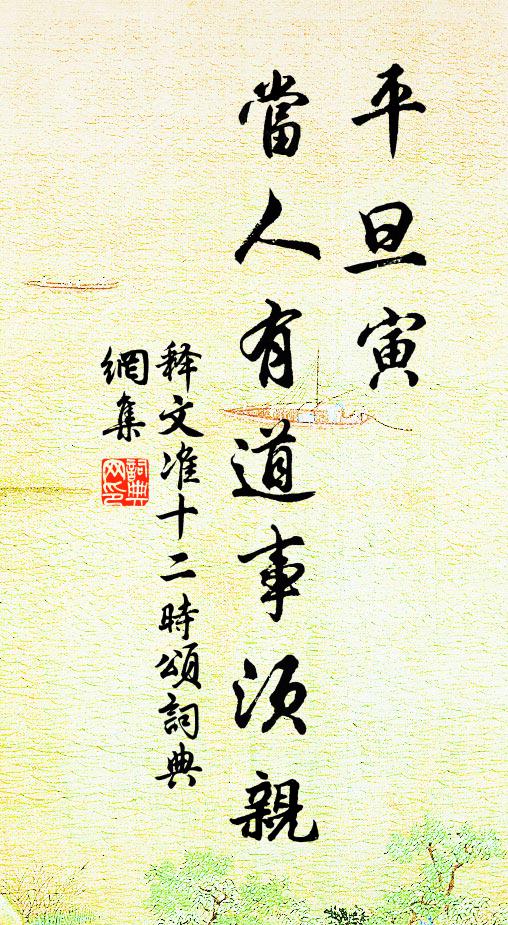 平旦寅
當人有道事須親
释文准十二時頌詞典
網集
詞典
网印